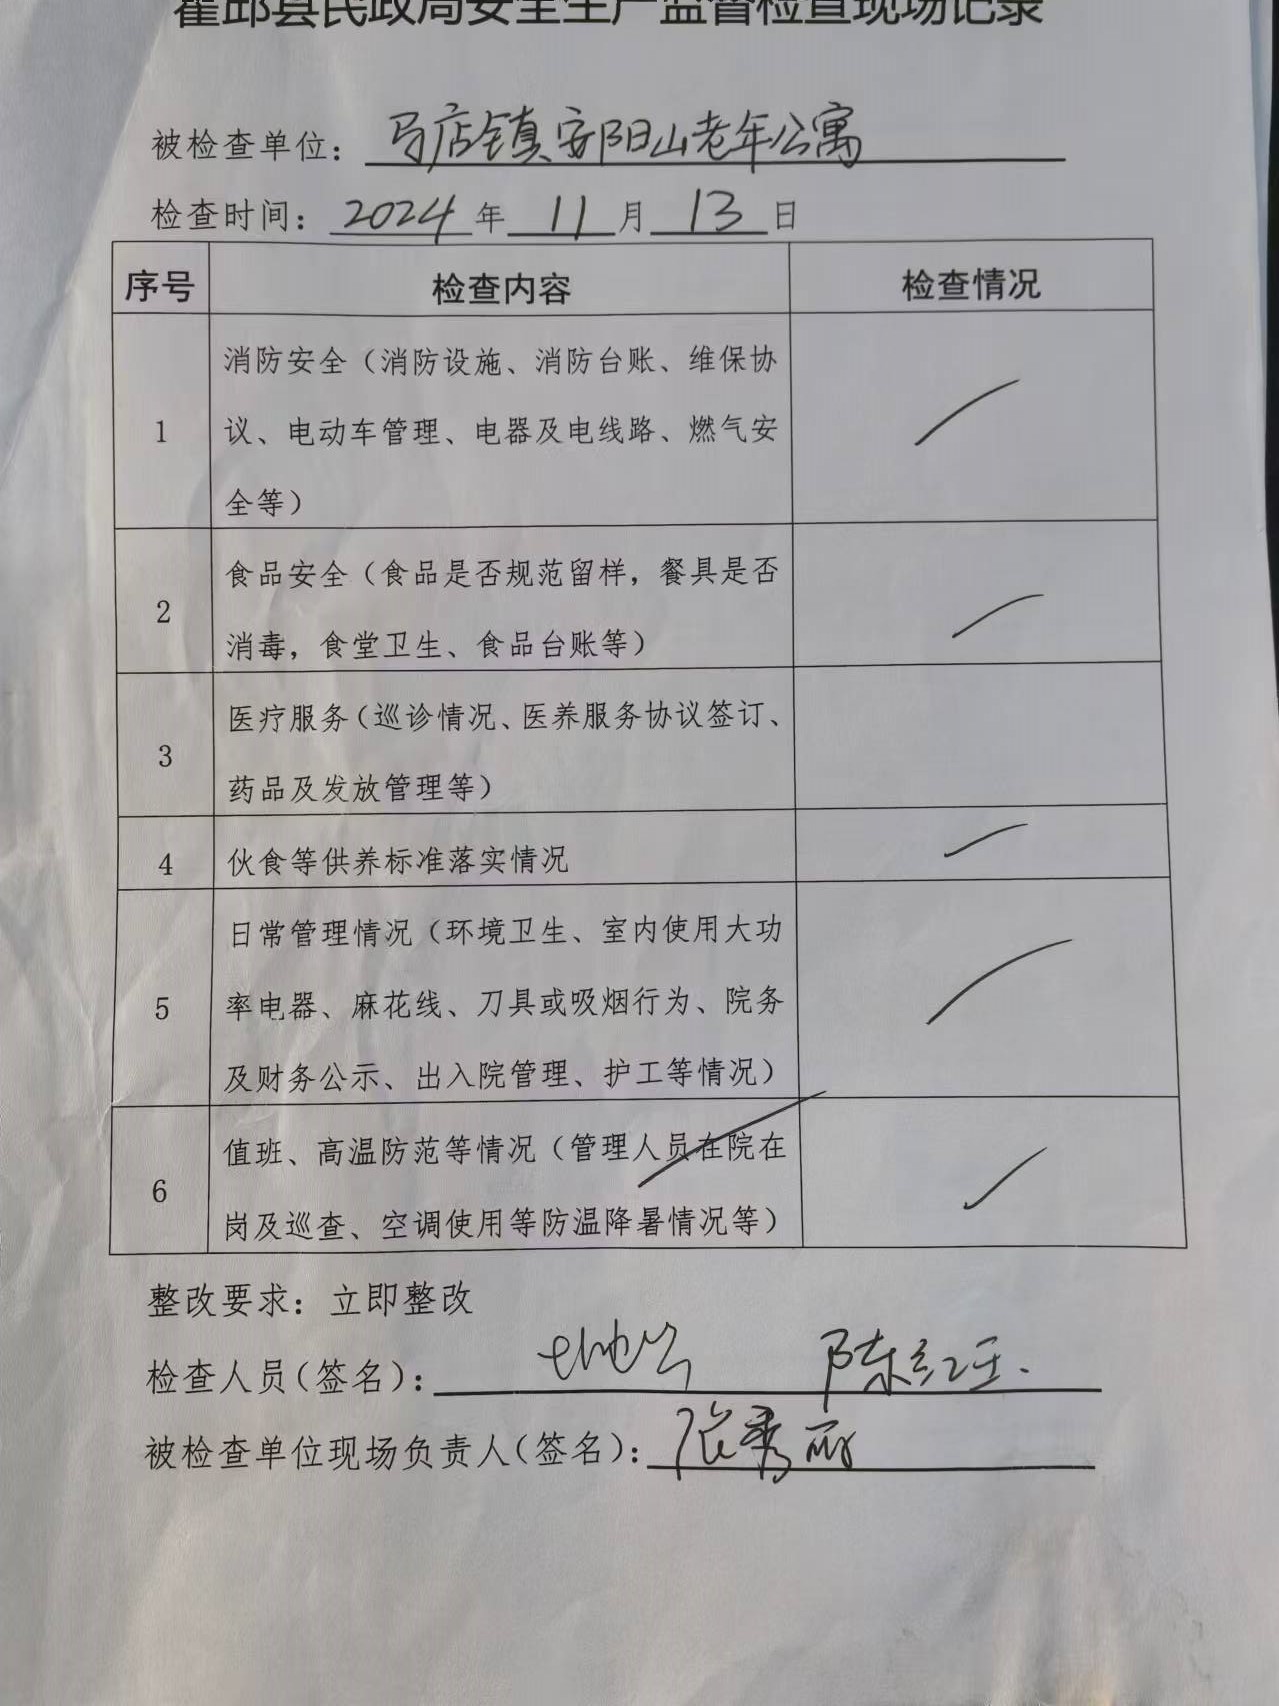 霍邱县民政局安全生产监督检查现场记录
被检查单位：马店镇安阳山老年公寓
检查时间：2024年11月13日
序号 检查内容 检查情况
消防安全（消防设施、消防台账、维保协
1 议、电动车管理、电器及电线路、燃气安
全等）
食品安全（食品是否规范留样，餐具是否
2
消毒，食堂卫生、食品台账等）
医疗服务（巡诊情况、医养服务协议签订、
3
药品及发放管理等）
4 伙食等供养标准落实情况
日常管理情况（环境卫生、室内使用大功
5 率电器、麻花线、刀具或吸烟行为、院务
及财务公示、出入院管理、护工等情况）
值班、高温防范等情况（管理人员在院在
6
岗及巡查、空调使用等防温降暑情况等）
整改要求：立即整改
检查人员（签名）：陈红玉
被检查单位现场负责人（签名）：张秀丽